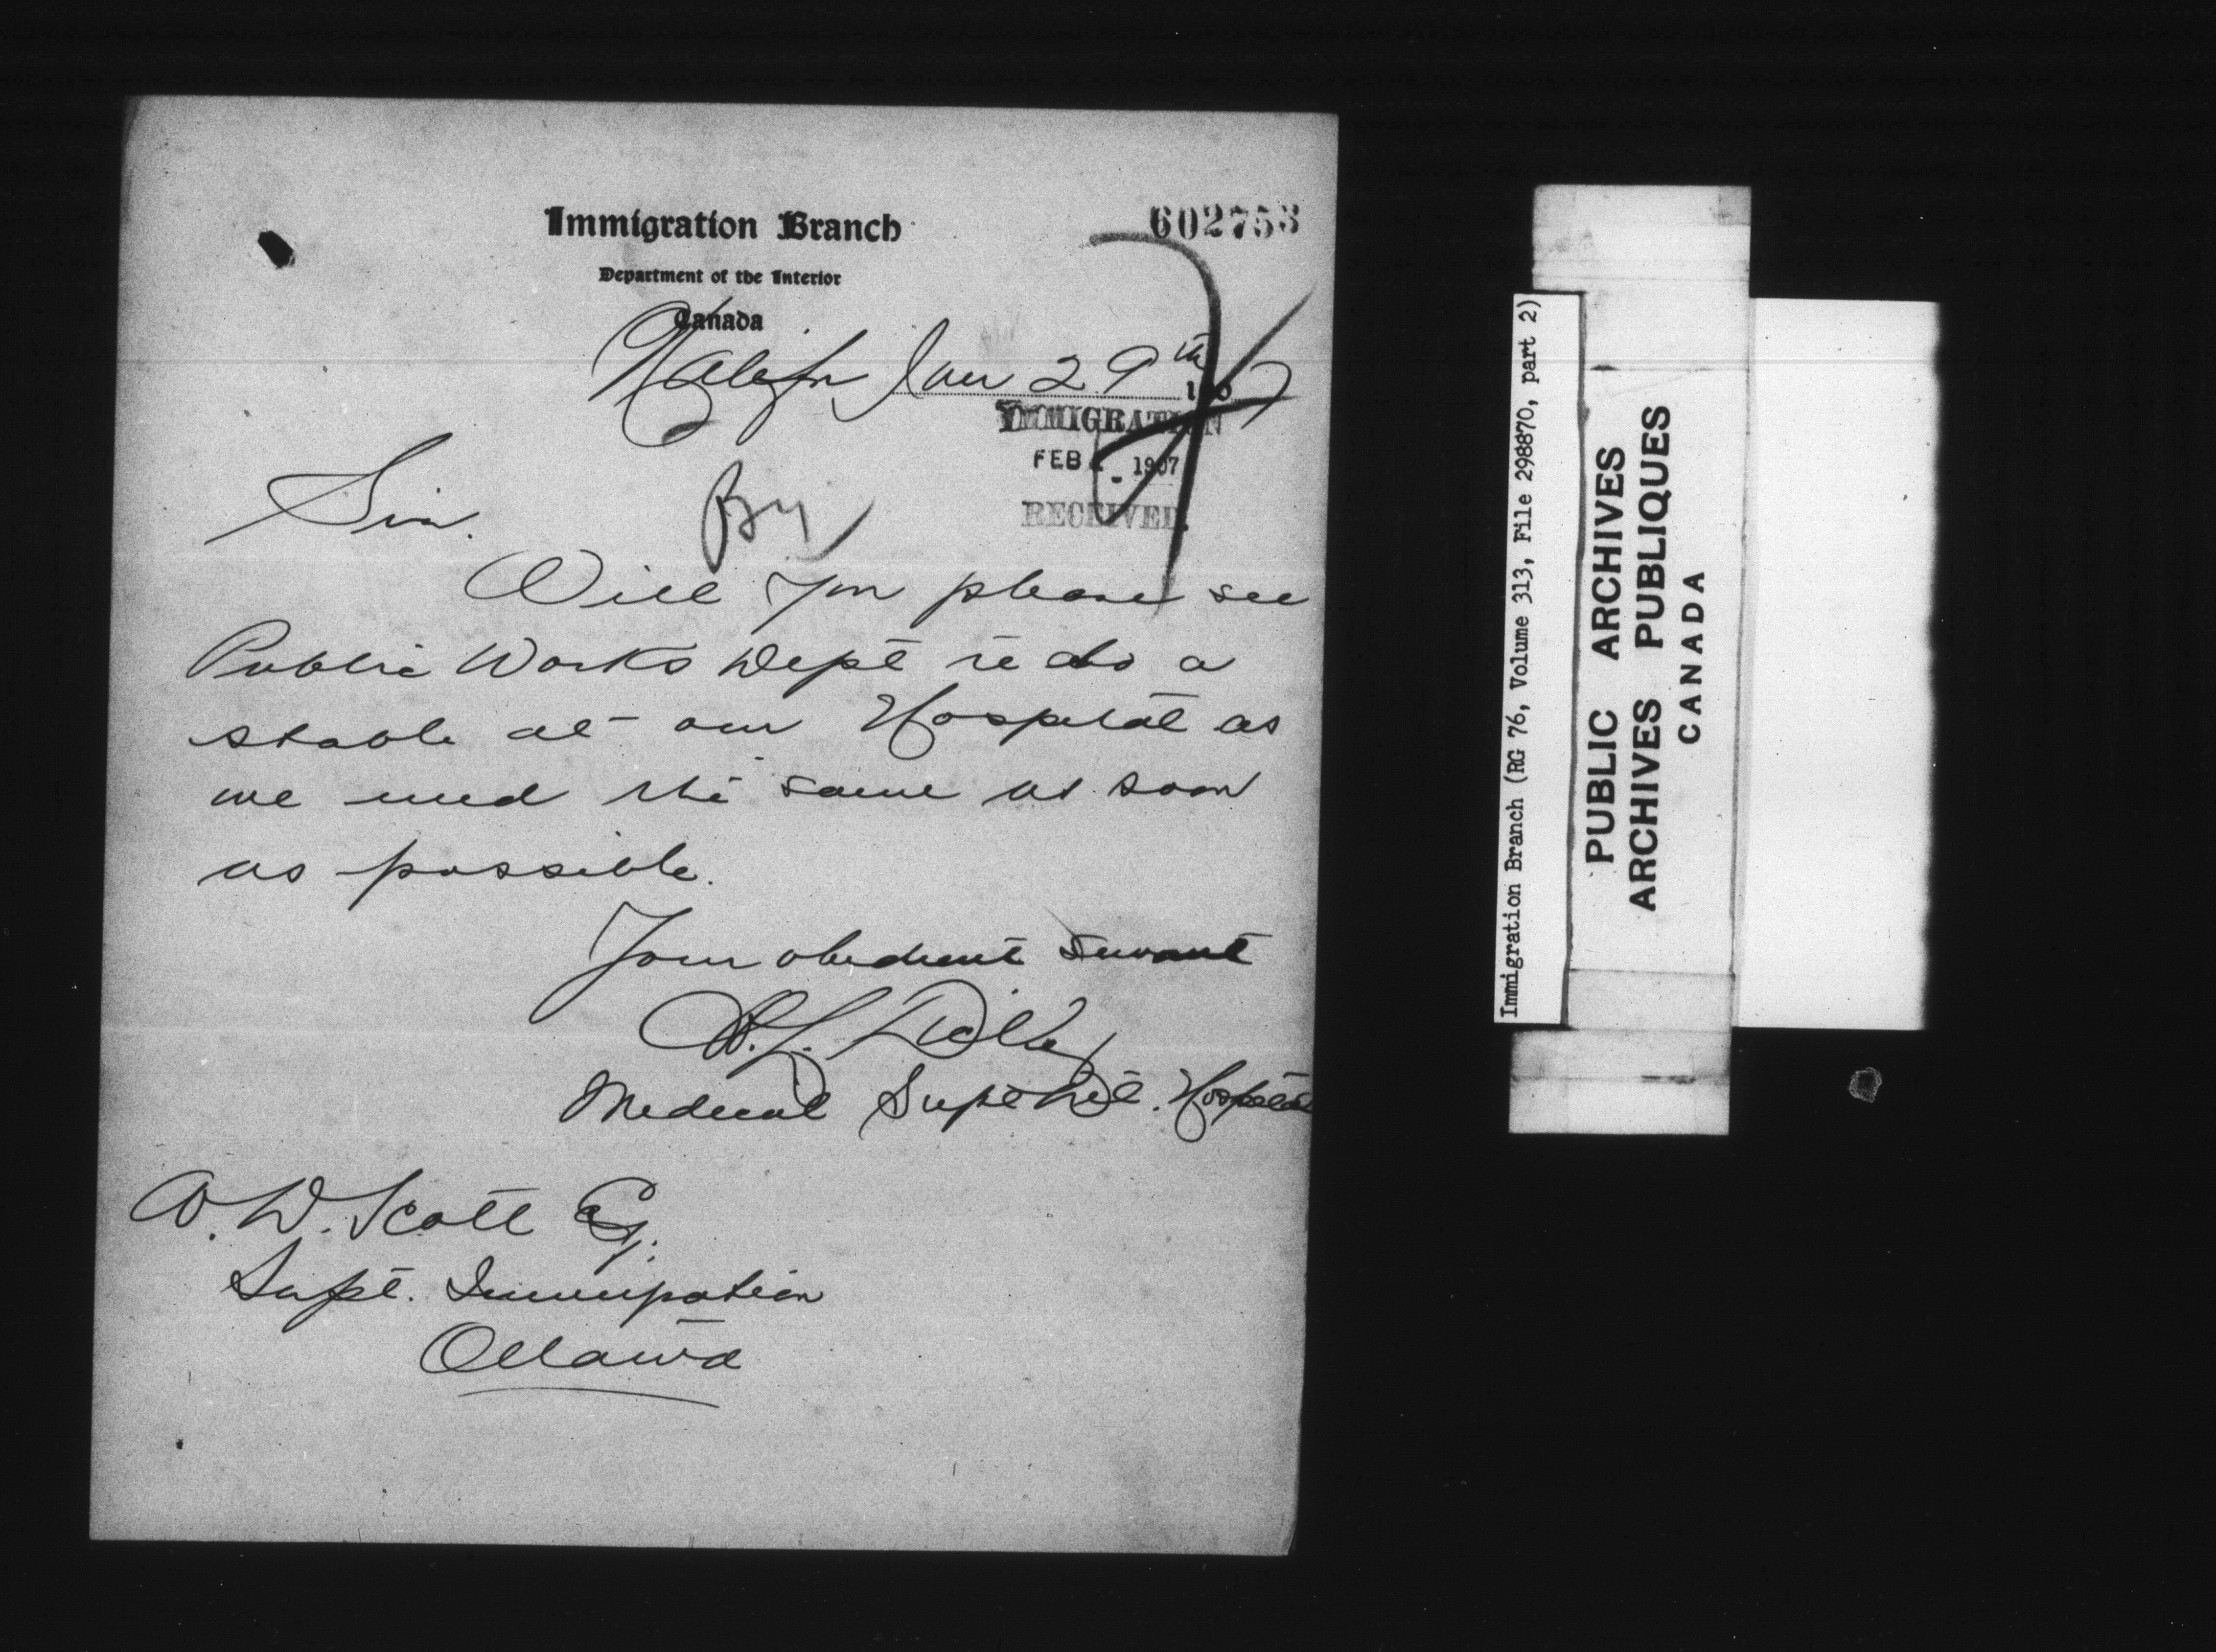 602753
Immigration Branch
Department of the Interior
Canada
Halifax Jan 29th 1907
IMMIGRATION
FEB 1907
RECEIVED.
Sir.
Will you please see
Public Works Dept re a
stable at our Hospital as
we need the same as soon
as possible.
Your obedient servant
Medical Supt Det. Hospital
W. D. Scott Esq.
Supt. Immigration
Ottawa
Immigration Branch (RG 76, Volume 313, File 298870, part 2)
PUBLIC ARCHIVES
ARCHIVES PUBLIQUES
CANADA